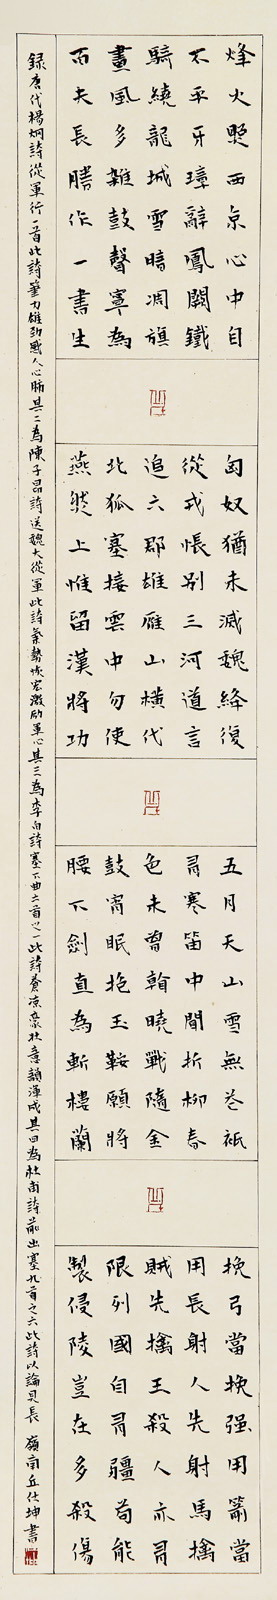 烽火照西京心中自
不平牙璋辭鳳闕鐵
騎繞龍城雪暗凋旗
畫風多雜鼓聲寧為
百夫長勝作一書生
匈奴猶未滅魏絳復
從戎悵別三河道言
追六郡雄雁山橫代
北狐塞接雲中勿使
燕然上惟留漢將功
五月天山雪無花祇
有寒笛中聞折柳春
色未曾看曉戰隨金
鼓宵眠抱玉鞍願將
腰下劍直為斬樓蘭
挽弓當挽强用箭當
用長射人先射馬擒
賊先擒王殺人亦有
限列國自有疆苟能
製侵陵豈在多殺傷
錄唐代楊炯詩從軍行一首此詩筆力雄勁感人心肺其二為陳子昂詩送魏大從軍此詩氣勢恢宏激勵軍心其三為李白詩塞下曲六首之一此詩蒼涼豪壯意韻渾成其四為杜甫詩前出塞九首之六此詩以論見長 嶺南丘仕坤書